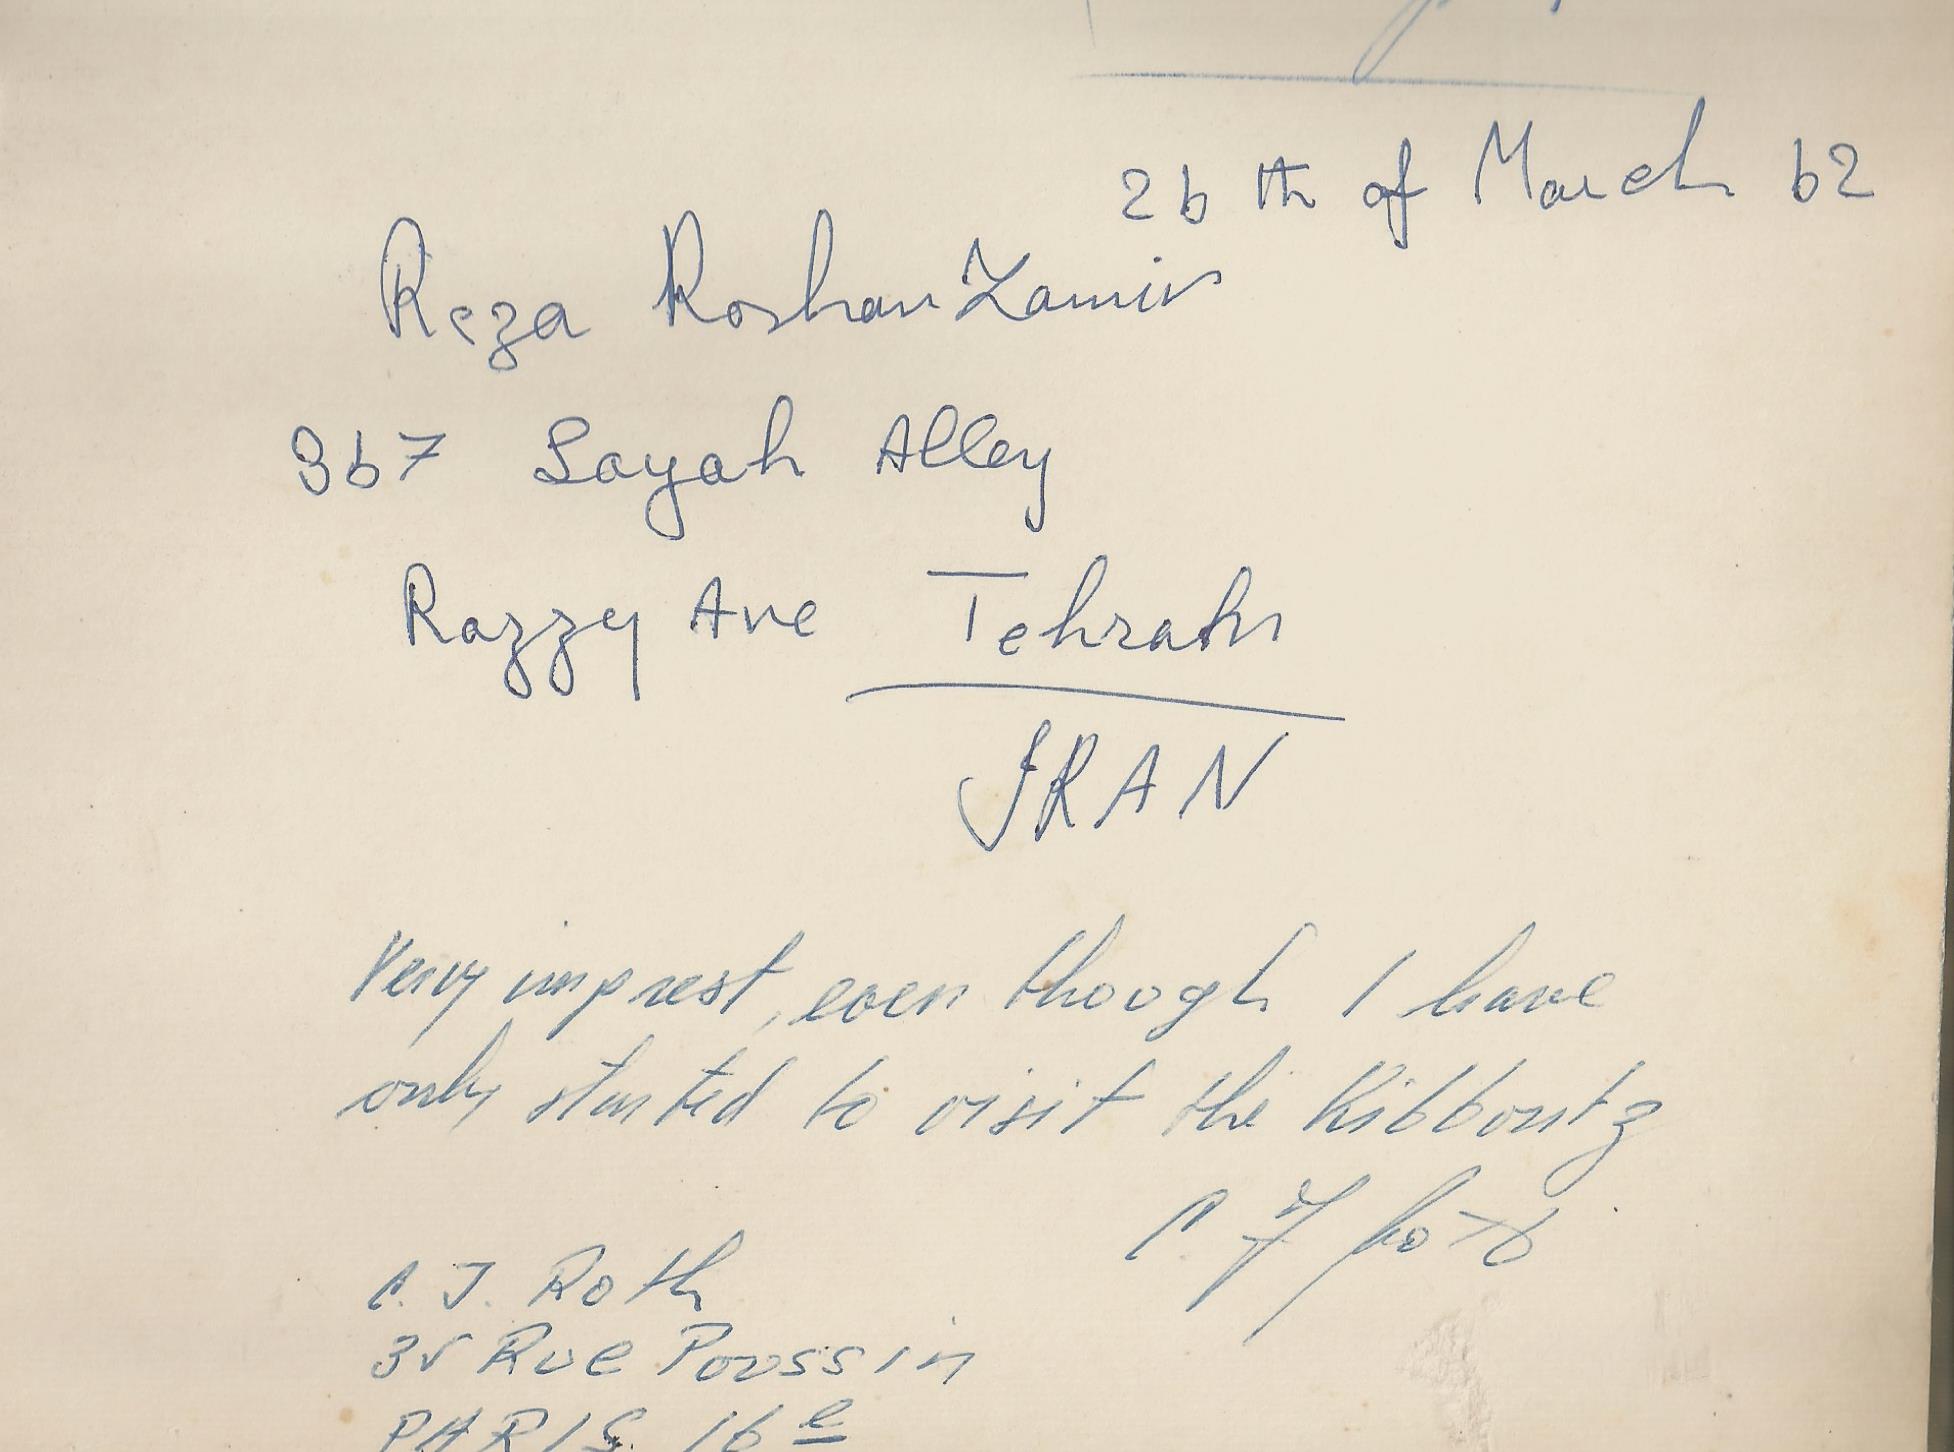 26 th of March 62
Reza Roshan Zamir
367 Sayah Alley
Razzy Ave Tehrahn
IRAN
Very imprest, even though I have
only started to visit the Kibboutz
J. Roth
35 Rue Poussin
PARIS. 16e